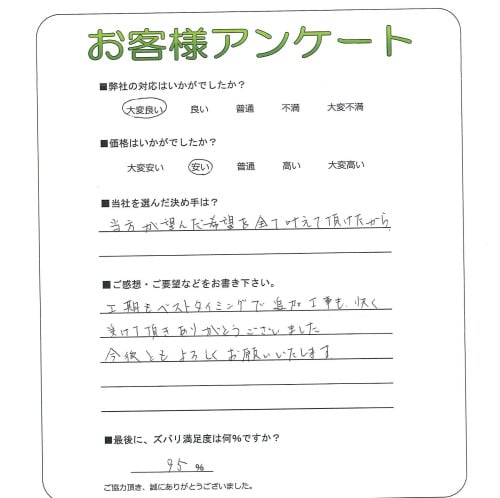 お客様アンケート
■弊社の対応はいかがでしたか？
大変良い 良い 普通 不満 大変不満
■価格はいかがでしたか？
大変安い 安い 普通 高い 大変高い
■当社を選んだ決め手は？
当方が望んだ希望を全て叶えて頂けたから
■ご感想・ご要望などをお書き下さい。
工期もベストタイミングで追加工事も快く
受けて頂きありがとうございました
今後ともよろしくお願いいたします
■最後に、ズバリ満足度は何%ですか？
95 %
ご協力頂き、誠にありがとうございました。